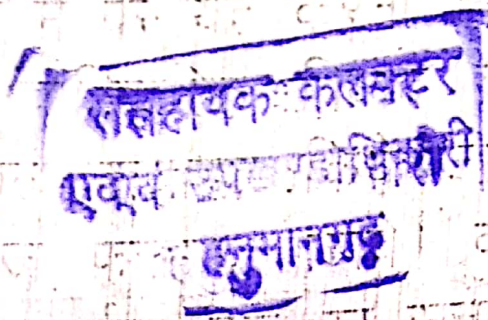 सहायक कलक्टर
एवं उपखण्ड अधिकारी
हनुमानगढ़